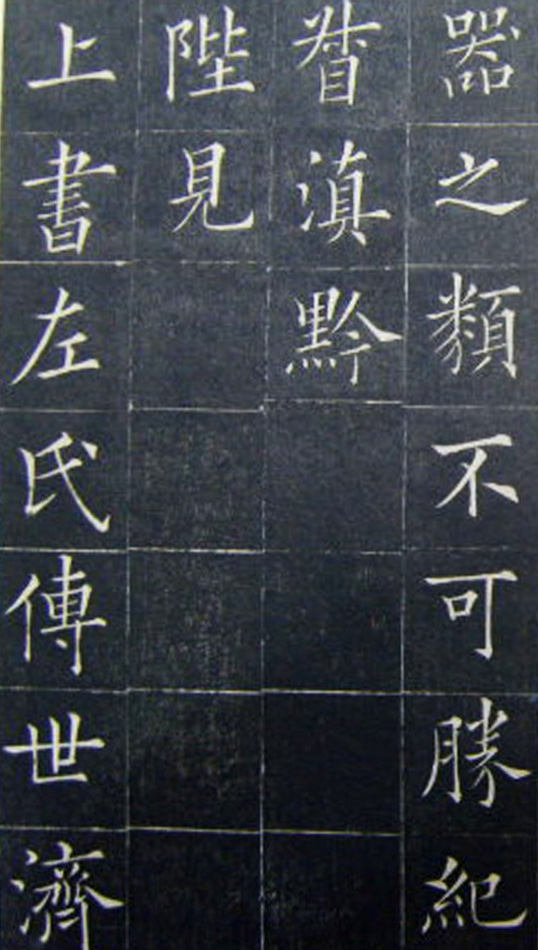 器之類不可勝紀
督滇黔
陛見
上書左氏傳世濟